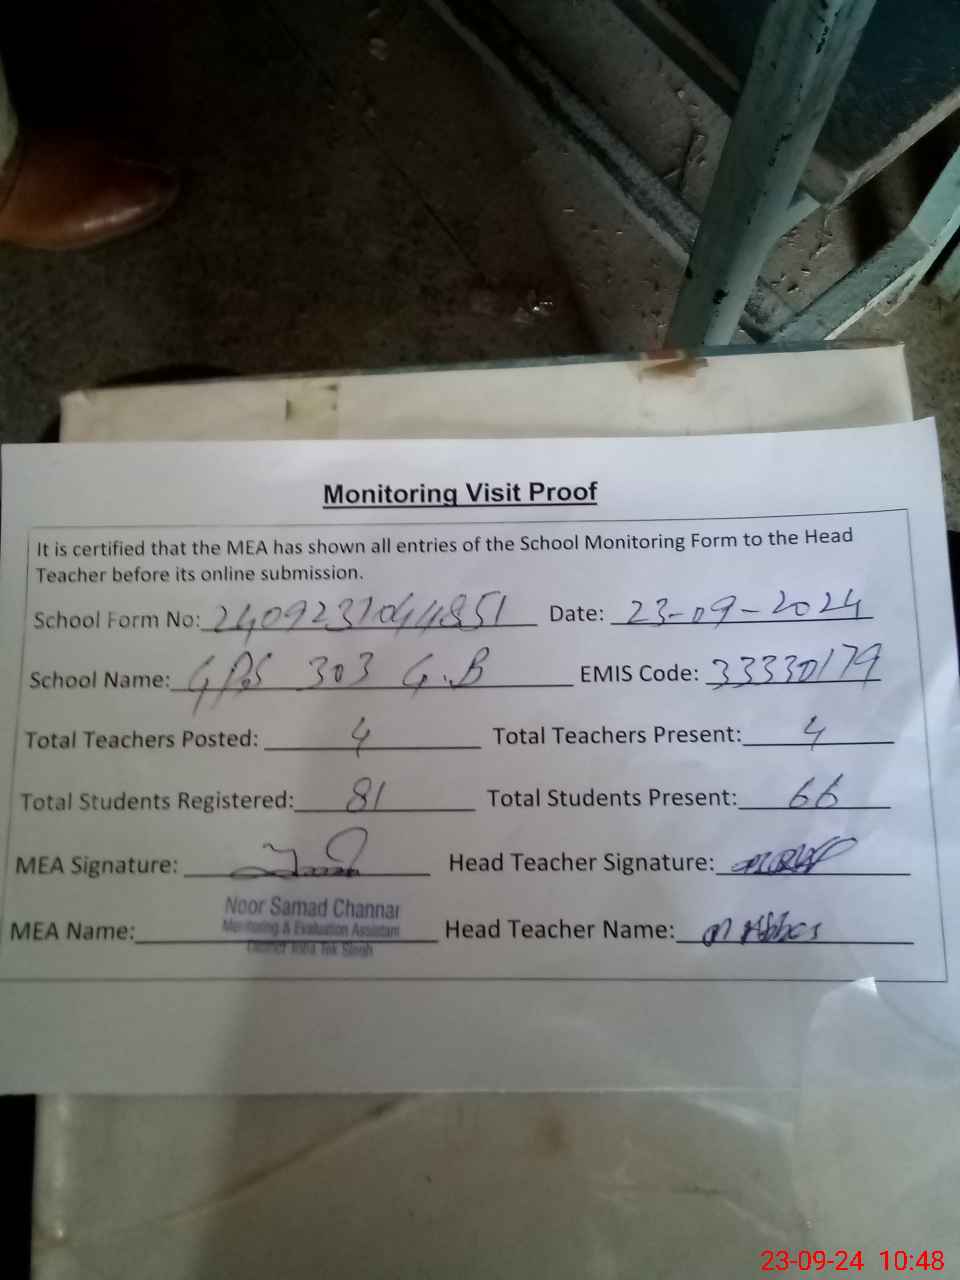 Monitoring Visit Proof
It is certified that the MEA has shown all entries of the School Monitoring Form to the Head
Teacher before its online submission.
School Form No: 2409231044851 Date: 23-09-2024
School Name: GPS 303 G.B EMIS Code: 33330179
Total Teachers Posted: 4 Total Teachers Present: 4
Total Students Registered: 81 Total Students Present: 66
MEA Signature: Head Teacher Signature:
Noor Samad Channar
Monitoring & Evaluation Assistant
MEA Name: Head Teacher Name: M Abbas
District Toba Tek Singh
23-09-24 10:48